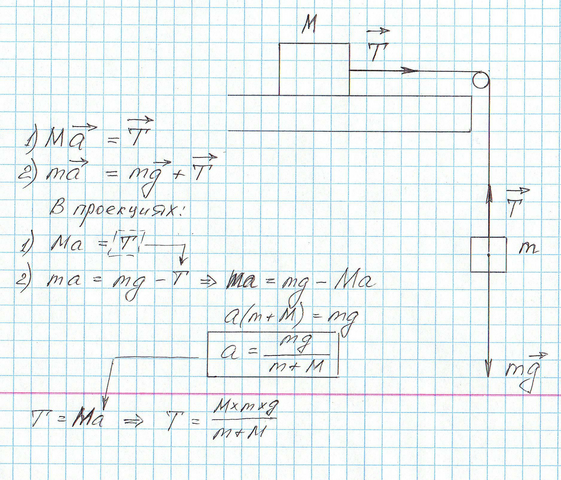 M
T⃗
1) Ma⃗ = T⃗
2) ma⃗ = mg⃗ + T⃗
В проекциях:
T⃗
m
1) Ma = T
2) ma = mg − T ⇒ ma = mg − Ma
a(m+M) = mg
a = mg / m+M
mg⃗
T = Ma ⇒ T = M×m×g / m+M